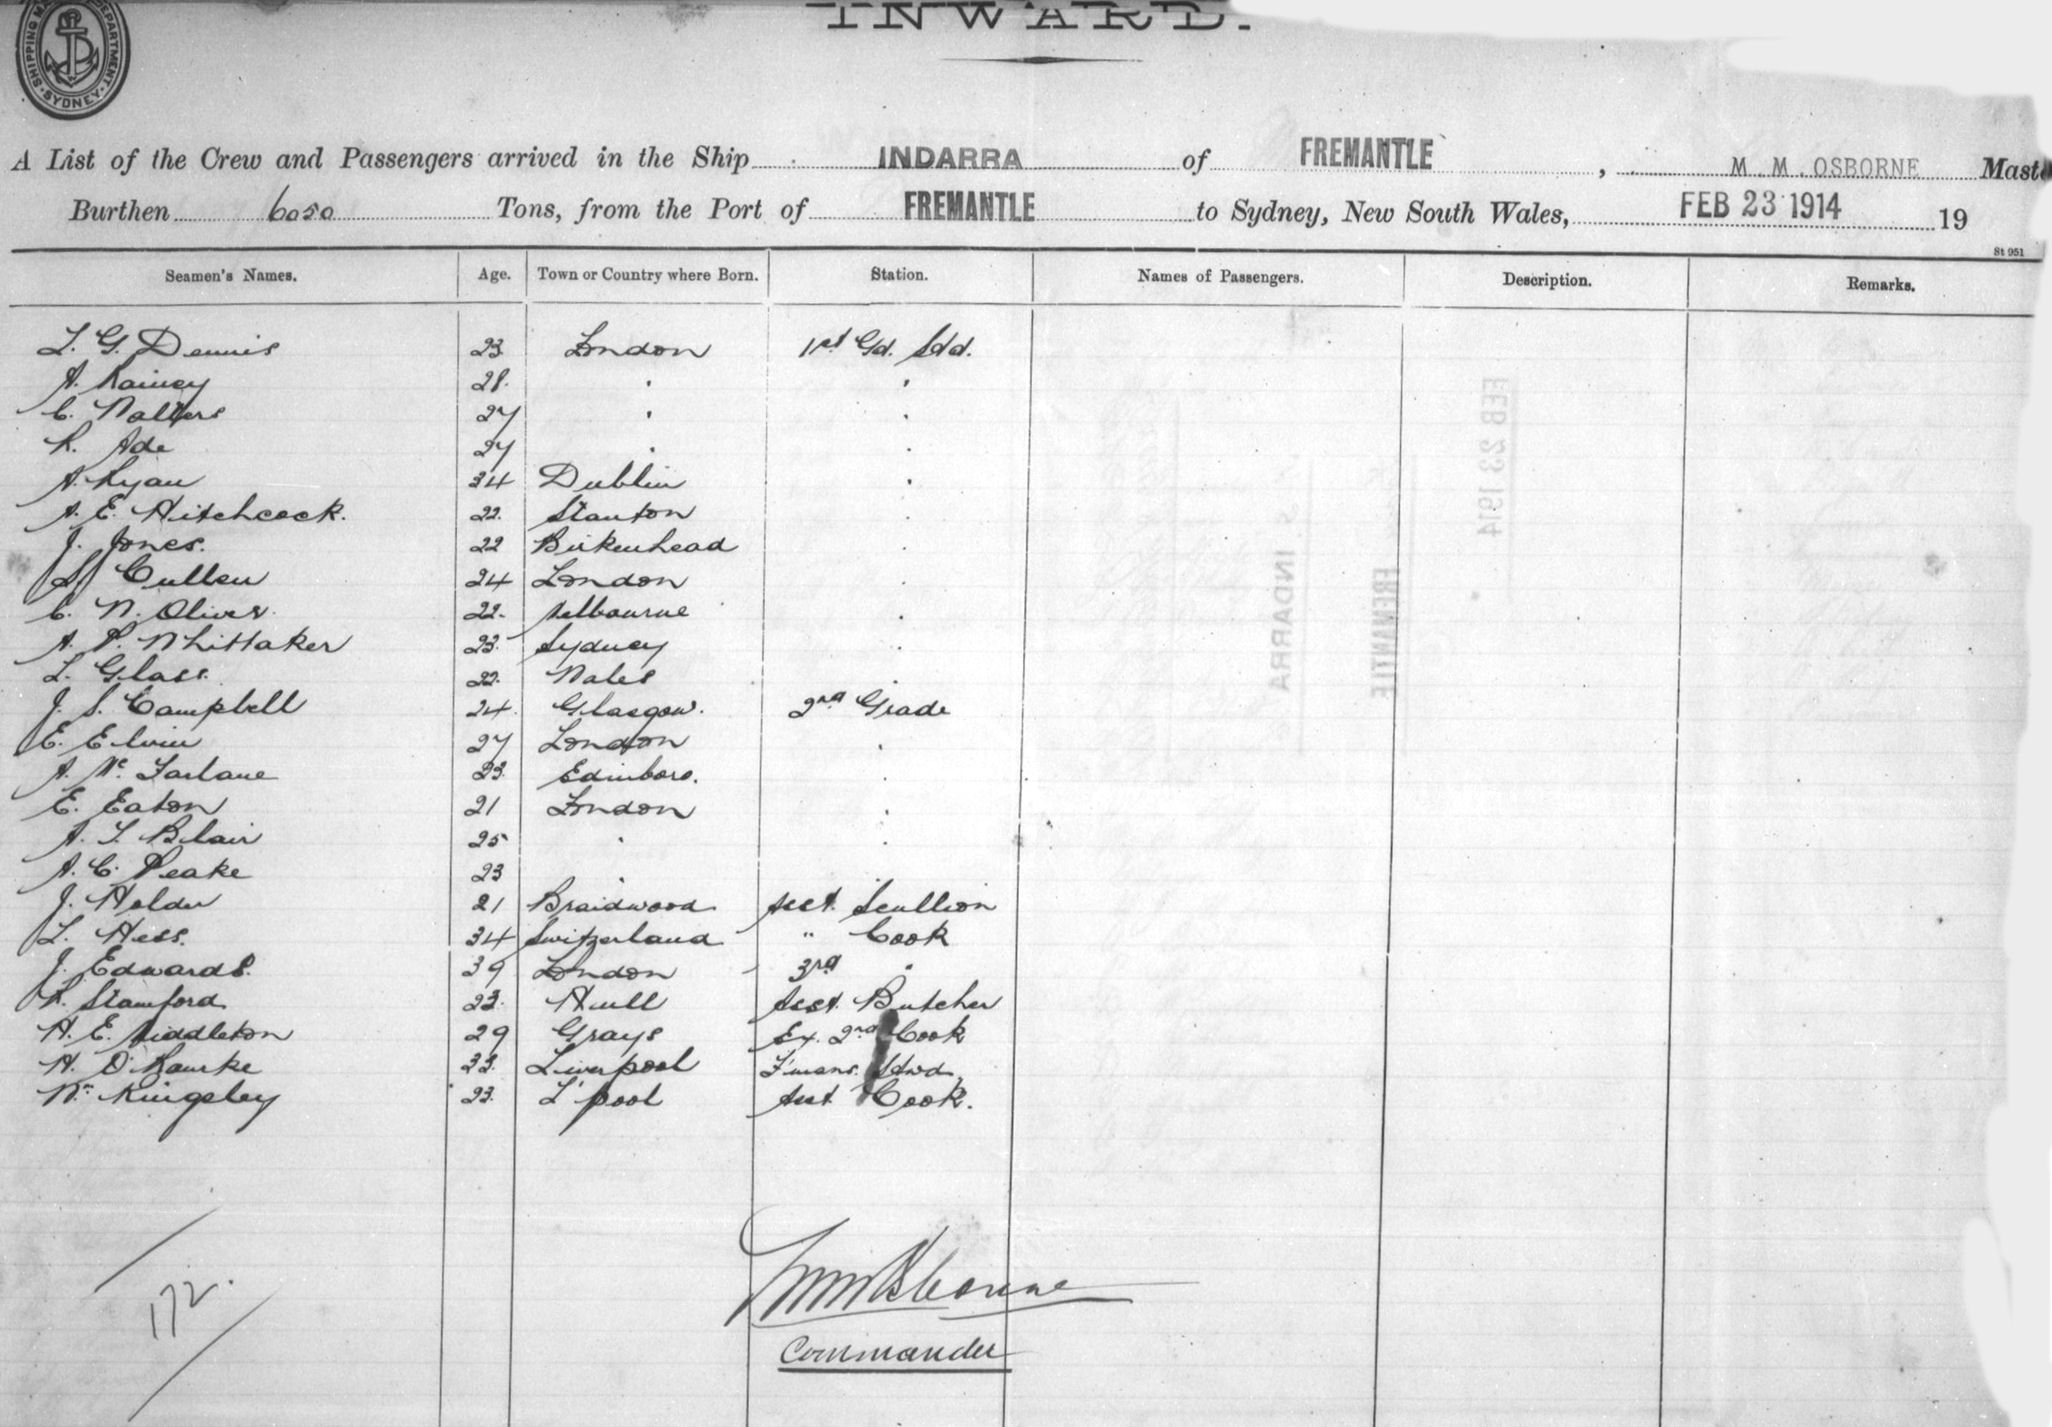 INWARD.
SHIPPING MA DEPARTMENT. SYDNEY
A List of the Crew and Passengers arrived in the Ship INDARRA of FREMANTLE, M. M. OSBORNE Maste
Burthen 6050 Tons, from the Port of FREMANTLE to Sydney, New South Wales, FEB 23 1914 19
St 951
Seamen's Names. Age. Town or Country where Born. Station. Names of Passengers. Description. Remarks.
L. G. Dennis 23 London 1st Gd. Std.
A. Rainey 28. " "
C. Walters 27 " "
R. Ade 27 " "
A. Ryan 34 Dublin "
A. E. Hitchcock. 22. Stanton "
J. Jones. 22 Birkenhead "
S. Cullen 24 London "
C. W. Oliver. 22. Melbourne "
A. P. Whittaker 23. Sydney "
L. Glass. 22. Wales "
J. S. Campbell 24. Glasgow. 2nd Grade
E. Elvin 27 London "
A. Mc Farlane 23. Edinboro. "
E. Eaton 21 London "
A. T. Blair 25 " "
A. C. Peake 23 "
J. Holder 21 Braidwood Asst. Scullion
L. Hess. 34 Switzerland " Cook
J. Edwards. 39 London 3rd "
R. Stamford 23. Hull Asst. Butcher
H. E. Middleton 29 Grays Ex. 2nd Cook
H. O'Rourke 33. Liverpool F'mans. Stwd.
Wm Kingsley 23. L'pool Asst. Cook.
172.
MM Osborne
Commander